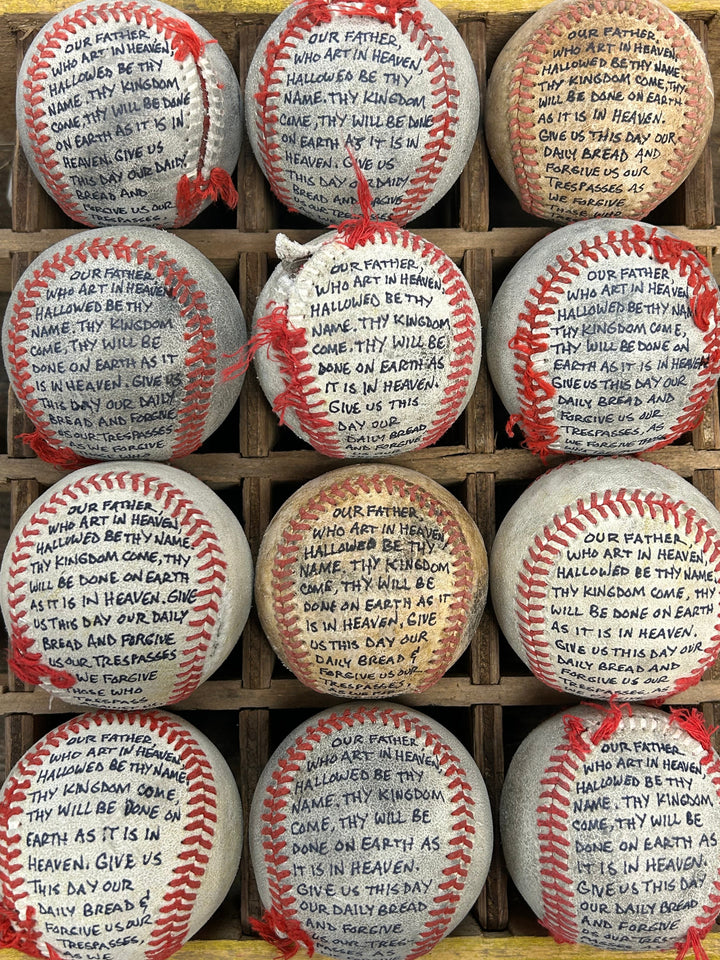 OUR FATHER,
WHO ART IN HEAVEN,
HALLOWED BE THY
NAME. THY KINGDOM
COME, THY WILL BE DONE
ON EARTH AS IT IS IN
HEAVEN. GIVE US
THIS DAY OUR DAILY
BREAD AND
FORGIVE US OUR
TRESPASSES,
OUR FATHER,
WHO ART IN HEAVEN
HALLOWED BE THY
NAME. THY KINGDOM
COME, THY WILL BE DONE
ON EARTH AS IT IS IN
HEAVEN. GIVE US
THIS DAY OUR DAILY
BREAD AND
FORGIVE US OUR
TRESPASSES
OUR FATHER,
WHO ART IN HEAVEN,
HALLOWED BE THY NAME.
THY KINGDOM COME, THY
WILL BE DONE ON EARTH
AS IT IS IN HEAVEN.
GIVE US THIS DAY OUR
DAILY BREAD AND
FORGIVE US OUR
TRESPASSES AS
WE FORGIVE
THOSE WHO
OUR FATHER,
WHO ART IN HEAVEN,
HALLOWED BE THY
NAME. THY KINGDOM
COME, THY WILL BE
DONE ON EARTH AS IT
IS IN HEAVEN. GIVE US
THIS DAY OUR DAILY
BREAD AND FORGIVE
US OUR TRESPASSES
AS WE FORGIVE
OUR FATHER,
WHO ART IN HEAVEN,
HALLOWED BE THY
NAME. THY KINGDOM
COME, THY WILL BE
DONE ON EARTH AS
IT IS IN HEAVEN.
GIVE US THIS
DAY OUR
DAILY BREAD
AND FORGIVE
OUR FATHER
WHO ART IN HEAVEN,
HALLOWED BE THY NAME
THY KINGDOM COME,
THY WILL BE DONE ON
EARTH AS IT IS IN HEAVEN
GIVE US THIS DAY OUR
DAILY BREAD AND
FORGIVE US OUR
TRESPASSES, AS
WE FORGIVE THOSE
OUR FATHER,
WHO ART IN HEAVEN,
HALLOWED BE THY NAME.
THY KINGDOM COME, THY
WILL BE DONE ON EARTH
AS IT IS IN HEAVEN. GIVE
US THIS DAY OUR DAILY
BREAD AND FORGIVE
US OUR TRESPASSES
AS WE FORGIVE
THOSE WHO
TRESPASS
OUR FATHER,
WHO ART IN HEAVEN,
HALLOWED BE THY
NAME. THY KINGDOM
COME, THY WILL BE
DONE ON EARTH AS IT
IS IN HEAVEN. GIVE
US THIS DAY OUR
DAILY BREAD &
FORGIVE US OUR
TRESPASSES
OUR FATHER,
WHO ART IN HEAVEN,
HALLOWED BE THY NAME
THY KINGDOM COME, THY
WILL BE DONE ON EARTH
AS IT IS IN HEAVEN.
GIVE US THIS DAY OUR
DAILY BREAD AND
FORGIVE US OUR
TRESPASSES AS
OUR FATHER,
WHO ART IN HEAVEN,
HALLOWED BE THY NAME
THY KINGDOM COME,
THY WILL BE DONE ON
EARTH AS IT IS IN
HEAVEN. GIVE US
THIS DAY OUR
DAILY BREAD &
FORGIVE US OUR
TRESPASSES,
AS WE
OUR FATHER,
WHO ART IN HEAVEN,
HALLOWED BE THY
NAME, THY KINGDOM
COME, THY WILL BE
DONE ON EARTH AS
IT IS IN HEAVEN.
GIVE US THIS DAY
OUR DAILY BREAD
AND FORGIVE
US OUR TRESPASSES
OUR FATHER,
WHO ART IN HEAVEN,
HALLOWED BE THY
NAME, THY KINGDOM
COME, THY WILL BE
DONE ON EARTH AS
IT IS IN HEAVEN.
GIVE US THIS DAY
OUR DAILY BREAD
AND FORGIVE
US OUR TRESPASSES